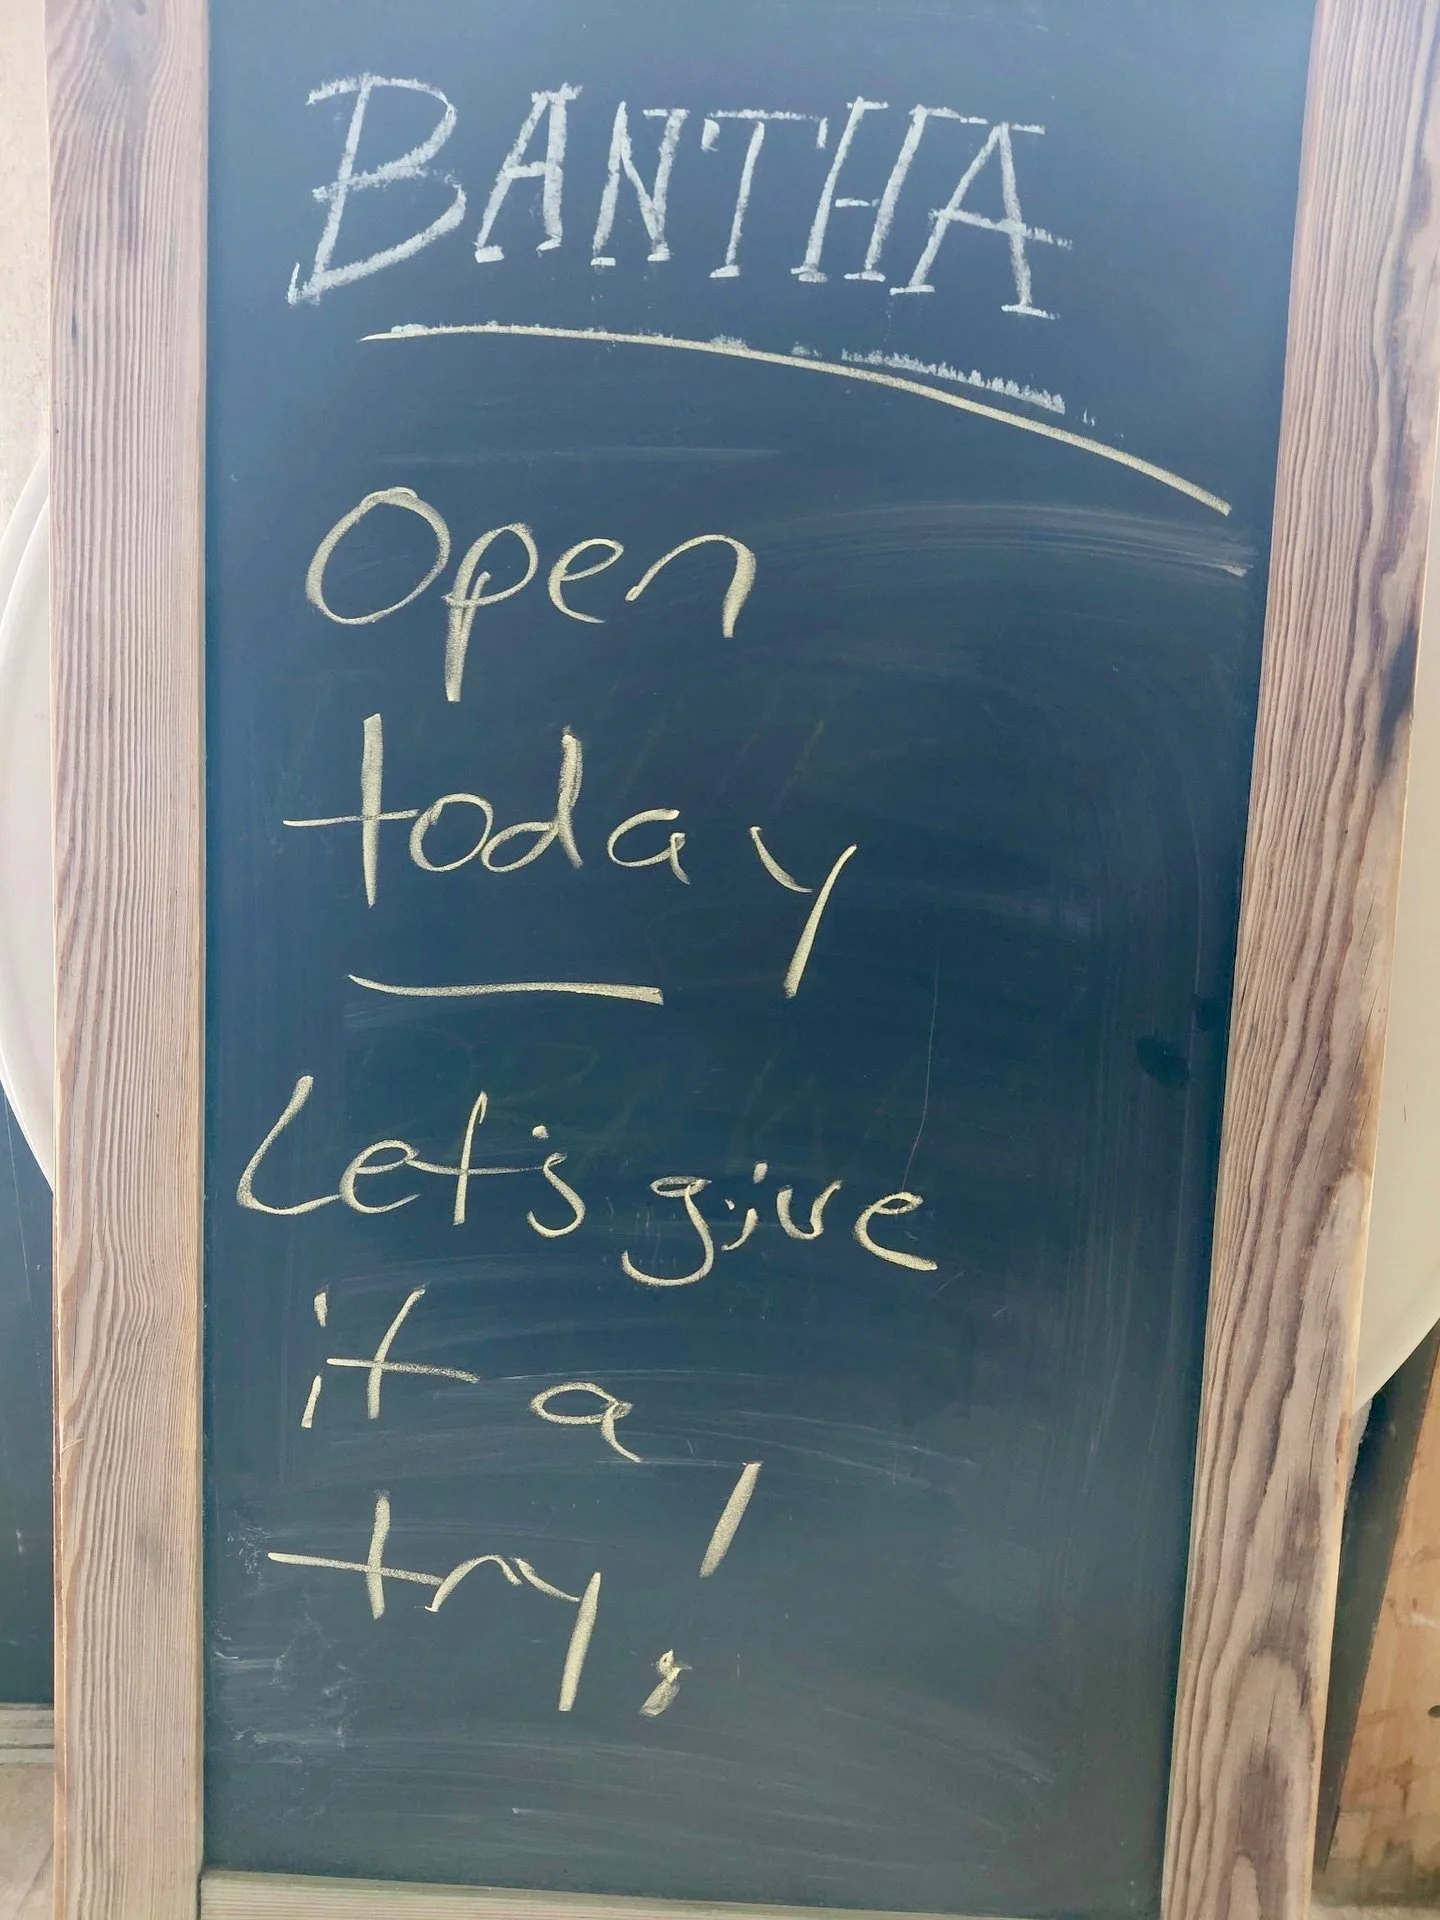 BANTHA
Open
today
Let's give
it a
try!